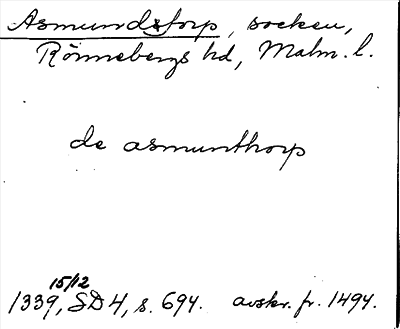 Asmundstorp, socken,
Rönnebergs hd, Malm. l.
de asmunthorp
15/12
1339, SD 4, s. 694. avskr. fr. 1494.